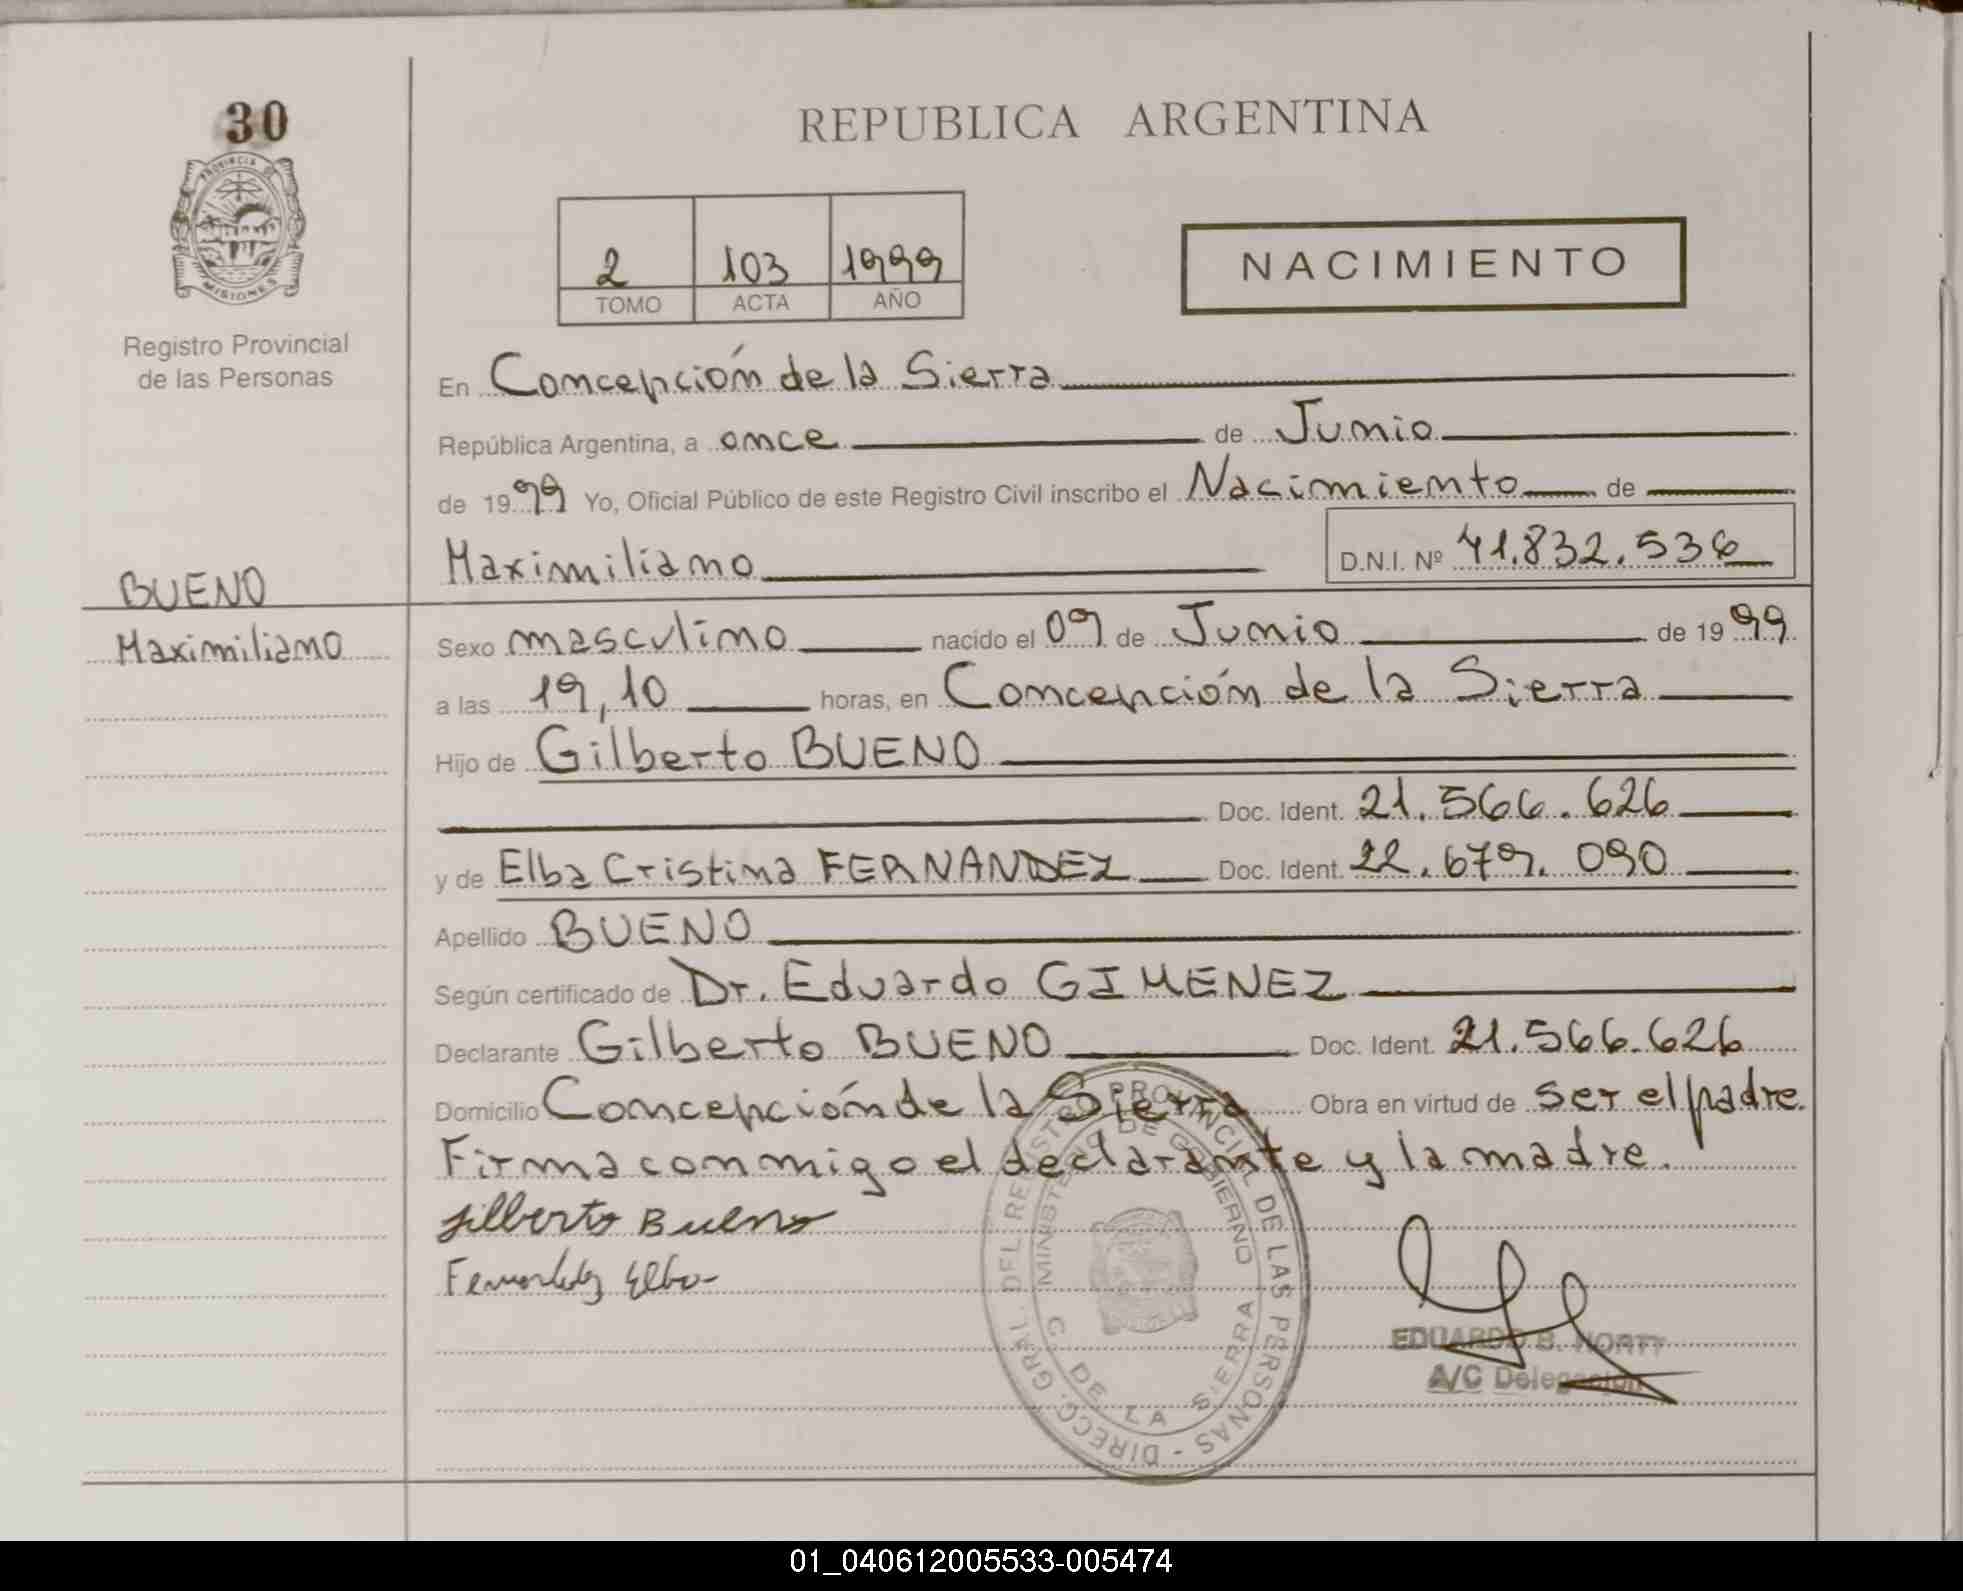 30
PROVINCIA DE
MISIONES
Registro Provincial
de las Personas
BUENO
Maximiliano
REPUBLICA ARGENTINA
2 103 1999
TOMO ACTA AÑO
NACIMIENTO
En Concepción de la Sierra
República Argentina, a once de Junio
de 1999 Yo, Oficial Público de este Registro Civil inscribo el Nacimiento de
Maximiliano D.N.I. Nº 41.832.536
Sexo masculino nacido el 09 de Junio de 1999
a las 19,10 horas, en Concepción de la Sierra
Hijo de Gilberto BUENO
Doc. Ident. 21.566.626
y de Elba Cristina FERNANDEZ Doc. Ident. 22.679.090
Apellido BUENO
Según certificado de Dr. Eduardo GIMENEZ
Declarante Gilberto BUENO Doc. Ident. 21.566.626
Domicilio Concepción de la Sierra Obra en virtud de ser el padre.
Firma conmigo el declarante y la madre.
Gilberto Bueno
Fernandez Elba
DIRECC. GRAL. DEL REGISTRO PROVINCIAL DE LAS PERSONAS -
MINISTERIO DE GOBIERNO
C. DE LA SIERRA
EDUARDO B.
A/C Delegación
01_040612005533-005474